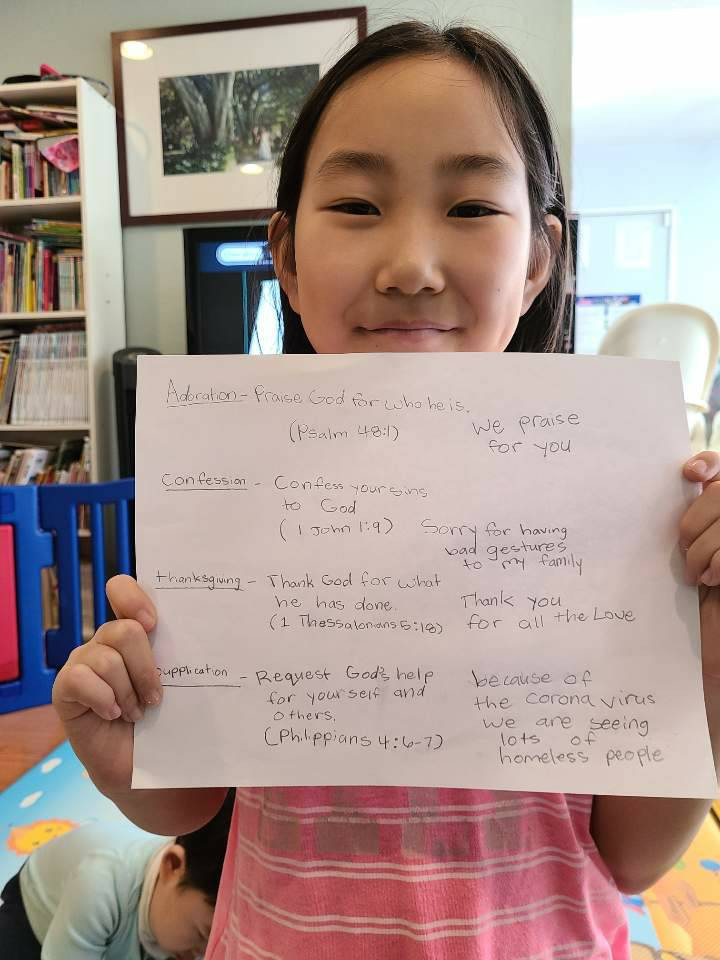 Adoration - Praise God for who he is.
(Psalm 48:1)
We praise
for you
Confession - Confess your sins
to God
(1 John 1:9)
Sorry for having
bad gestures
to my family
thanksgiving - Thank God for what
he has done.
(1 Thessalonians 5:18)
Thank you
for all the Love
Supplication - Request God's help
for yourself and
others.
(Philippians 4:6-7)
because of
the Corona virus
we are seeing
lots of
homeless people